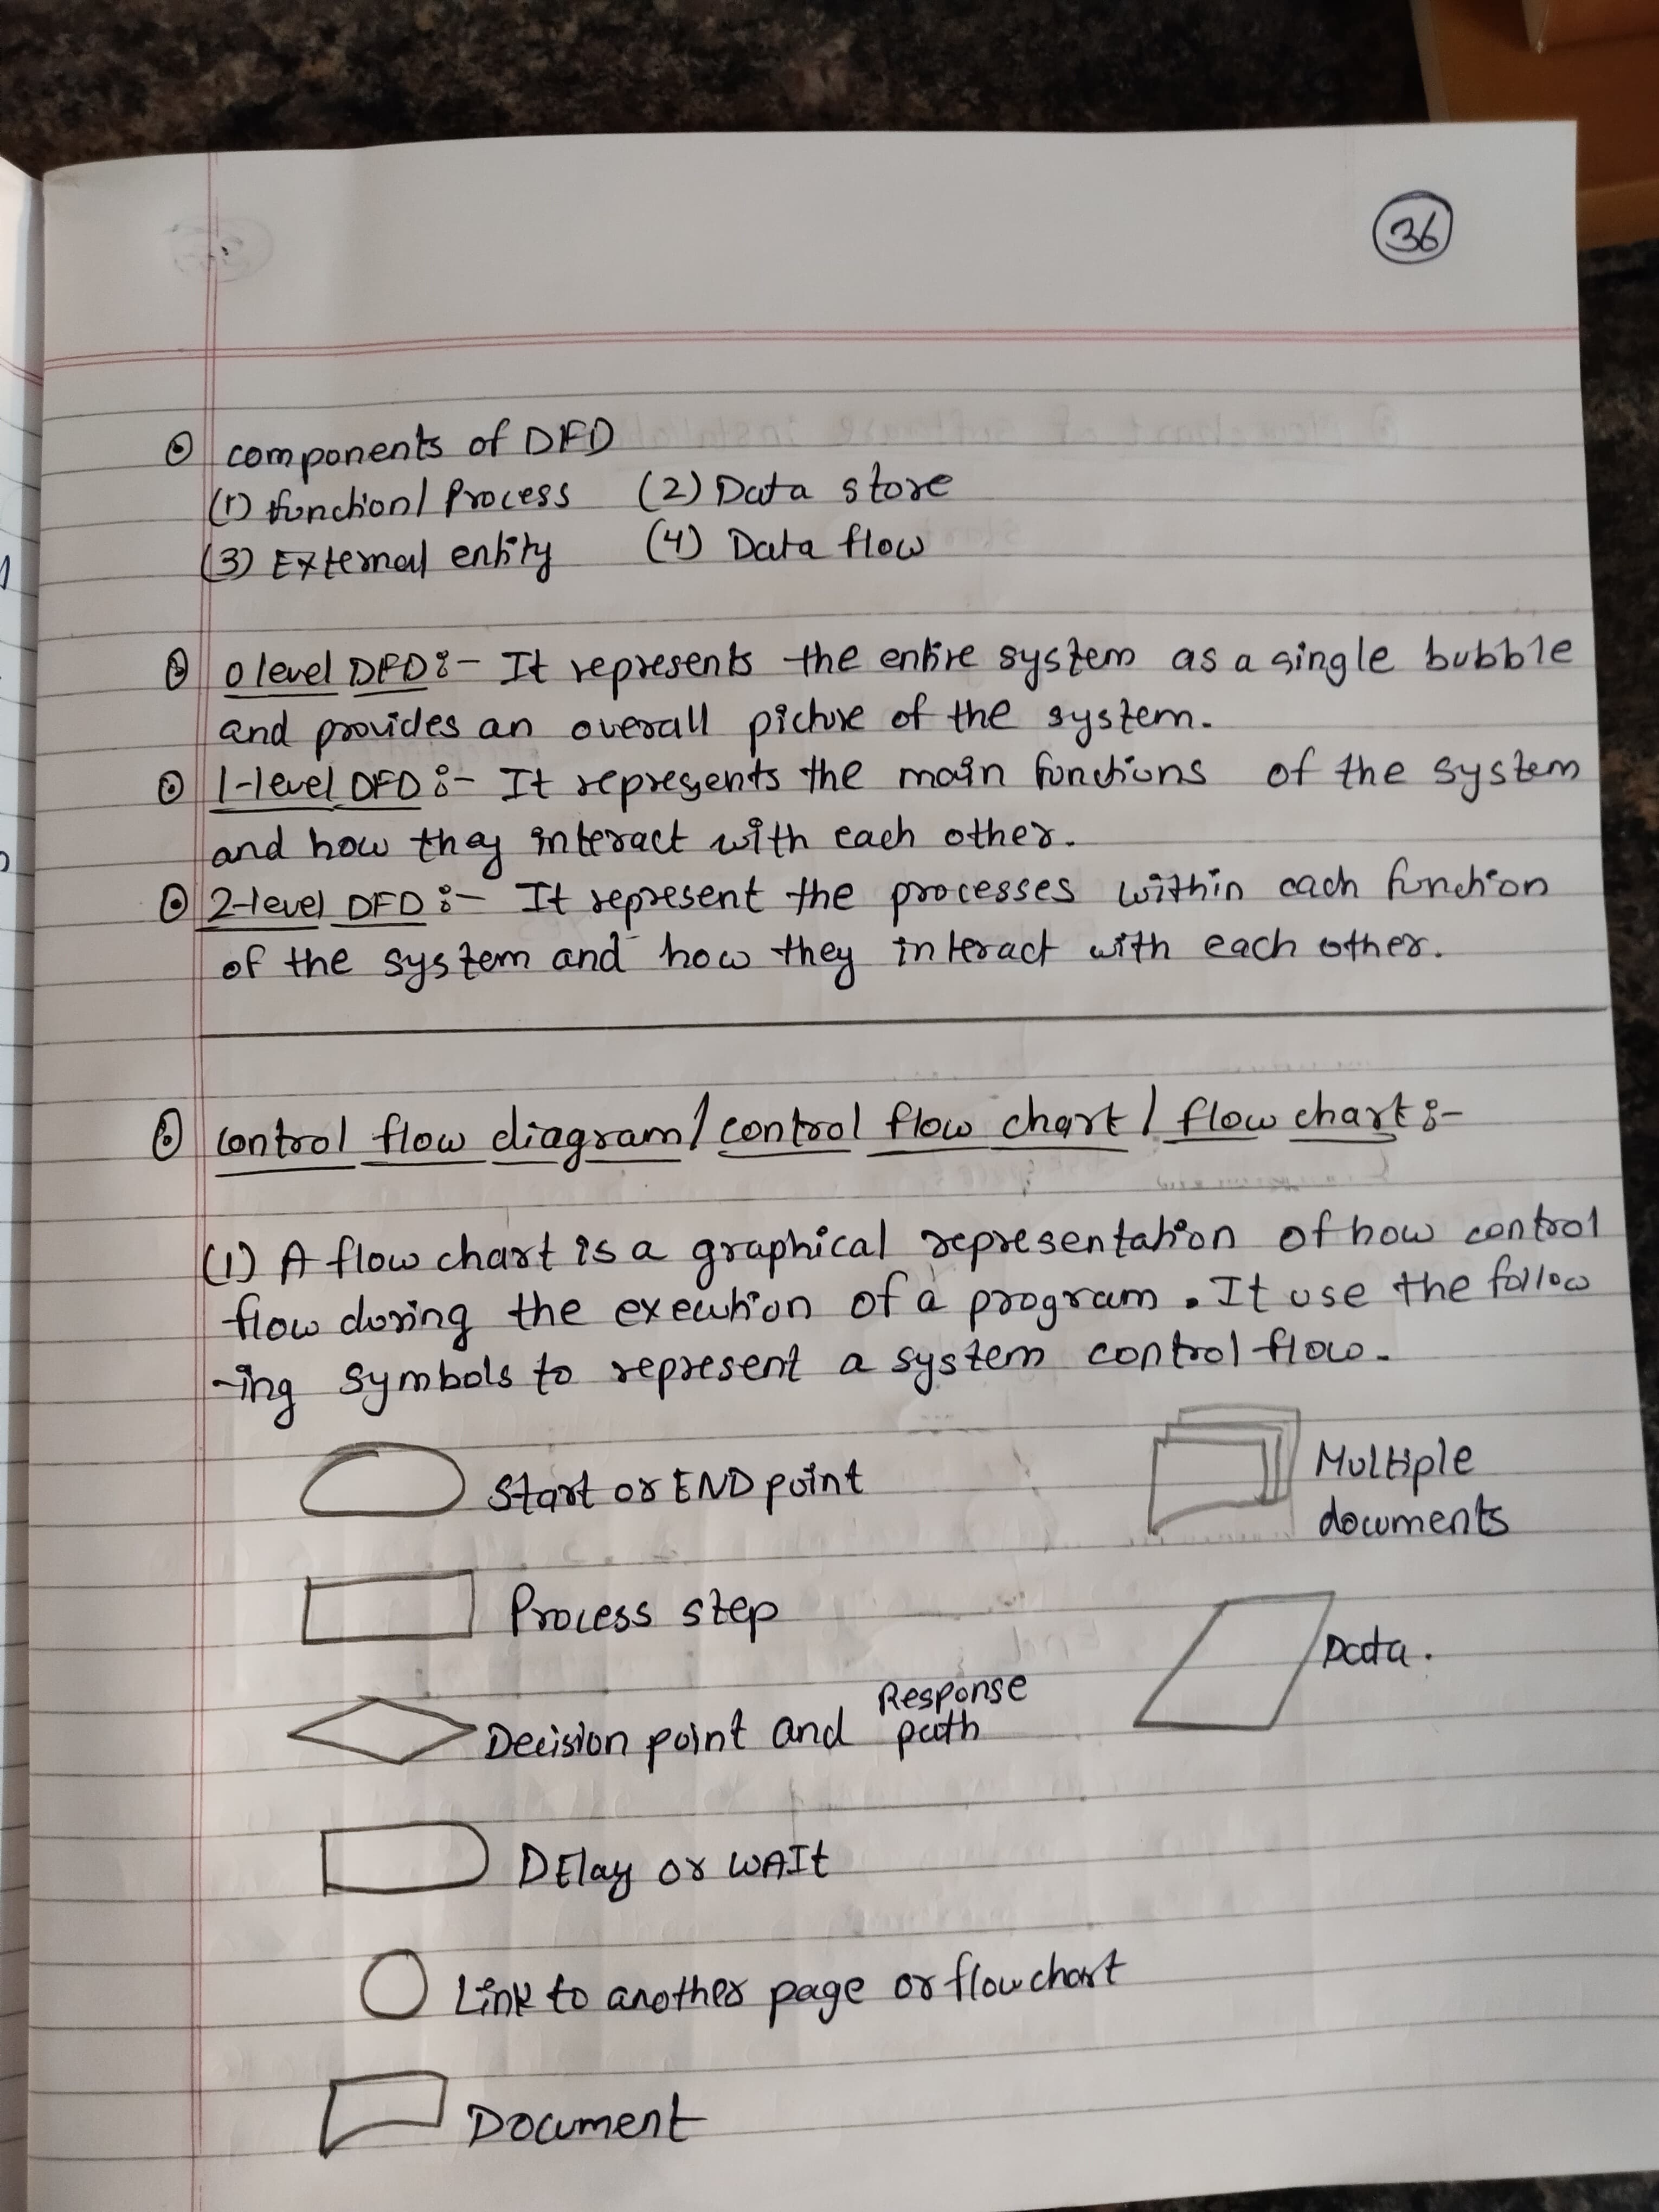 36
components of DFD
(1) function/Process (2) Data store
(3) External entity (4) Data flow
0 level DFD:- It represents the entire system as a single bubble
and provides an overall picture of the system.
1-level DFD:- It represents the main functions of the system
and how they interact with each other.
2-level DFD:- It represent the processes within each function
of the system and how they interact with each other.
control flow diagram/control flow chart/flow chart:-
(1) A flow chart is a graphical representation of how control
flow during the execution of a program. It use the follow
-ing symbols to represent a system control flow.
Start or END point
Multiple
documents
Process step
Data.
Decision point and Response
path
DElay or WAIt
Link to another page or flowchart
Document